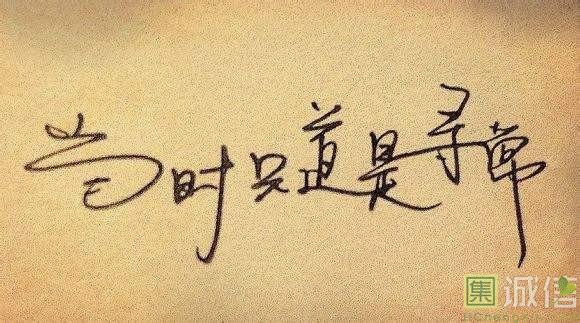 当时只道是寻常
集 诚信